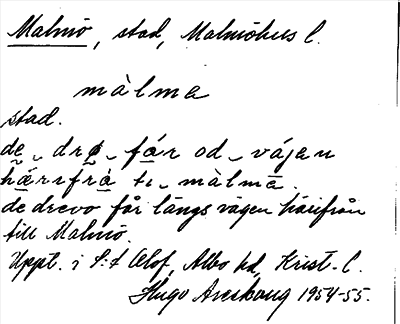 Malmö, stad, Malmöhus l.
màlma
stad.
de drø fár od vájen
hárifrá ti màlma.
de drevo får längs vägen härifrån
till Malmö.
Uppt. i S:t Olof, Albo hd, Krist. l.
Hugo Areskoug 1954-55.